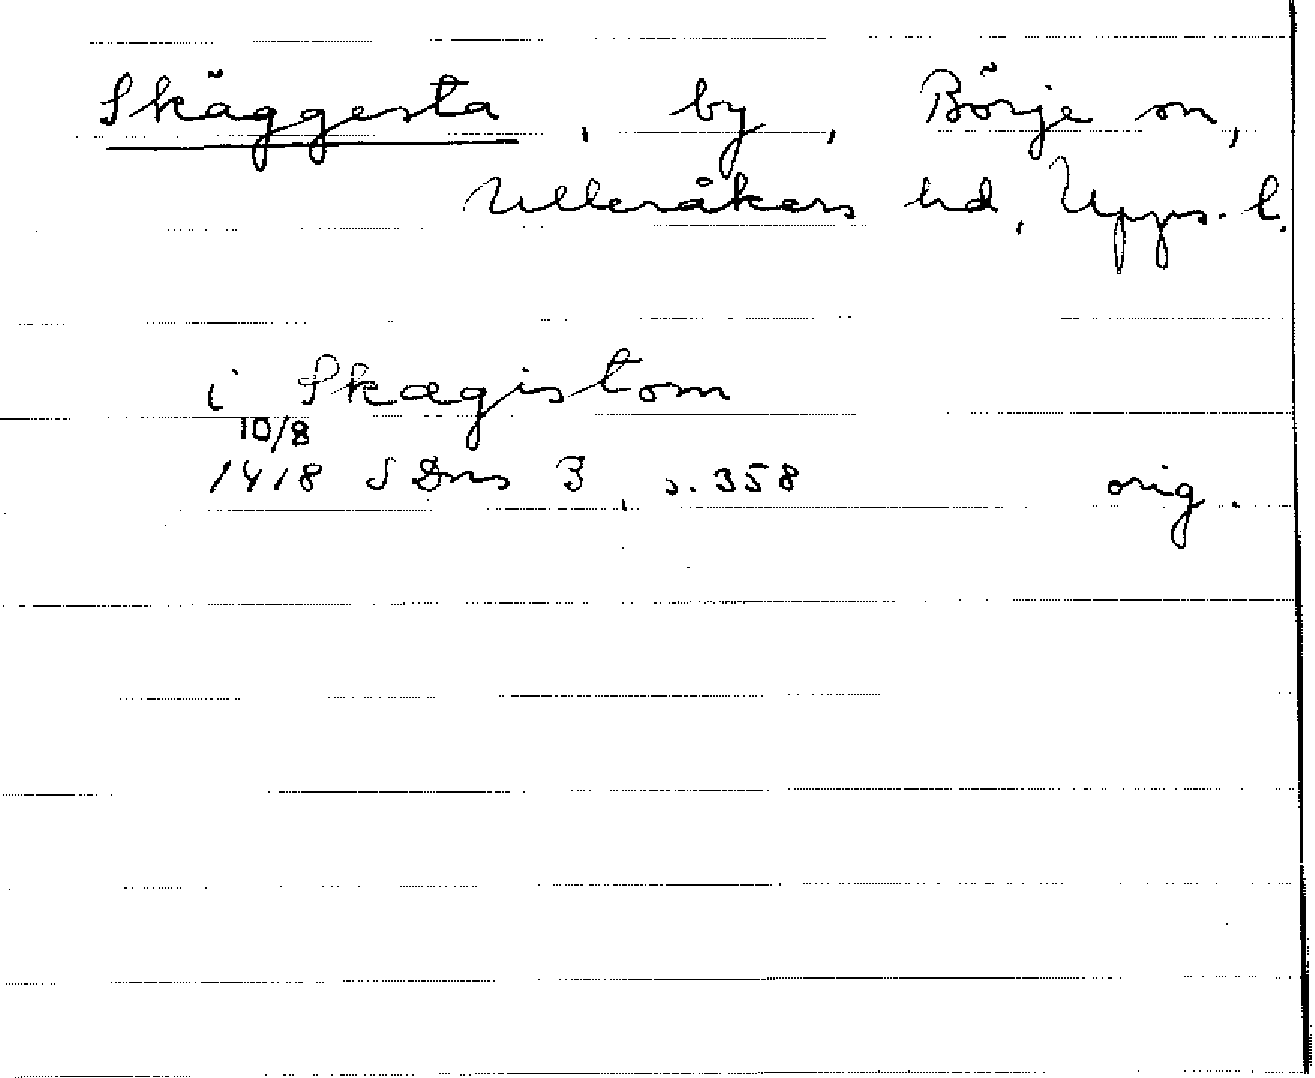 Skäggesta, by, Börje sn,
Ulleråkers hd, Upps. l.
i Skægistom
10/8
1418 SDns 3, s. 358 orig.